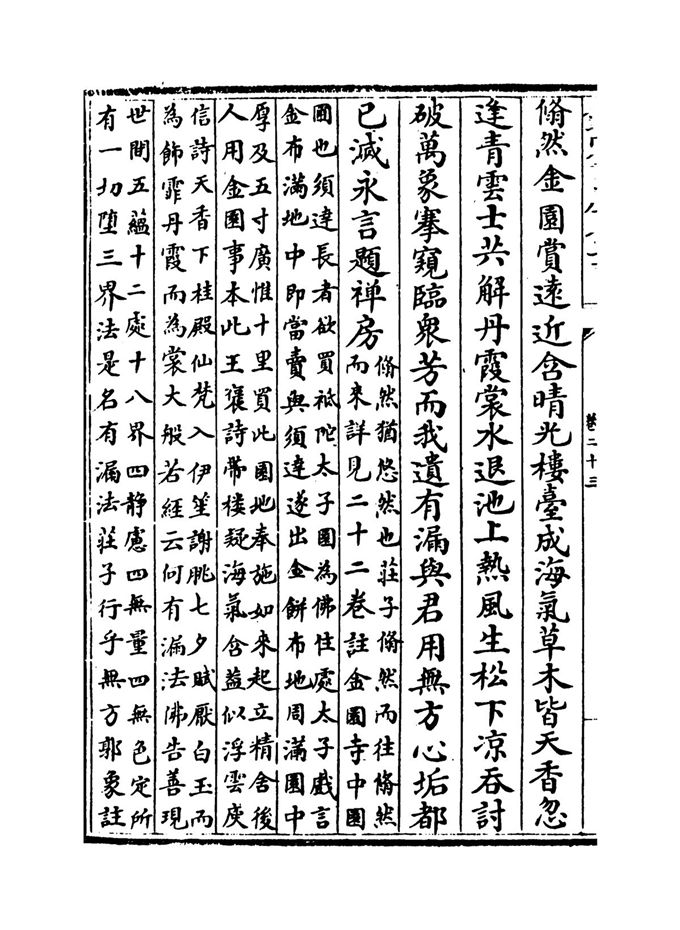 翛然金園賞遠近含晴光樓臺成海氣草木皆天香忽
逢青雲士共解丹霞裳水退池上熱風生松下凉吞討
破萬象搴窺臨衆芳而我遺有漏與君用無方心垢都
已滅永言題禅房
翛然猶悠然也莊子翛然而往翛然
而來詳見二十二卷註金園寺中園
圃也須達長者欲買祗陀太子園為佛住處太子戲言
金布滿地中即當賣與須達遂出金餅布地周滿園中
厚及五寸廣惟十里買此園地奉施如來起立精舍後
人用金園事本此王褒詩帶樓疑海氣含蓋似浮雲庾
信詩天香下桂殿仙梵入伊笙謝朓七夕賦厭白玉而
為飾霏丹霞而為裳大般若經云何有漏法佛告善現
世間五蘊十二處十八界四静慮四無量四無色定所
有一切堕三界法是名有漏法莊子行乎無方郭象註
卷二十三